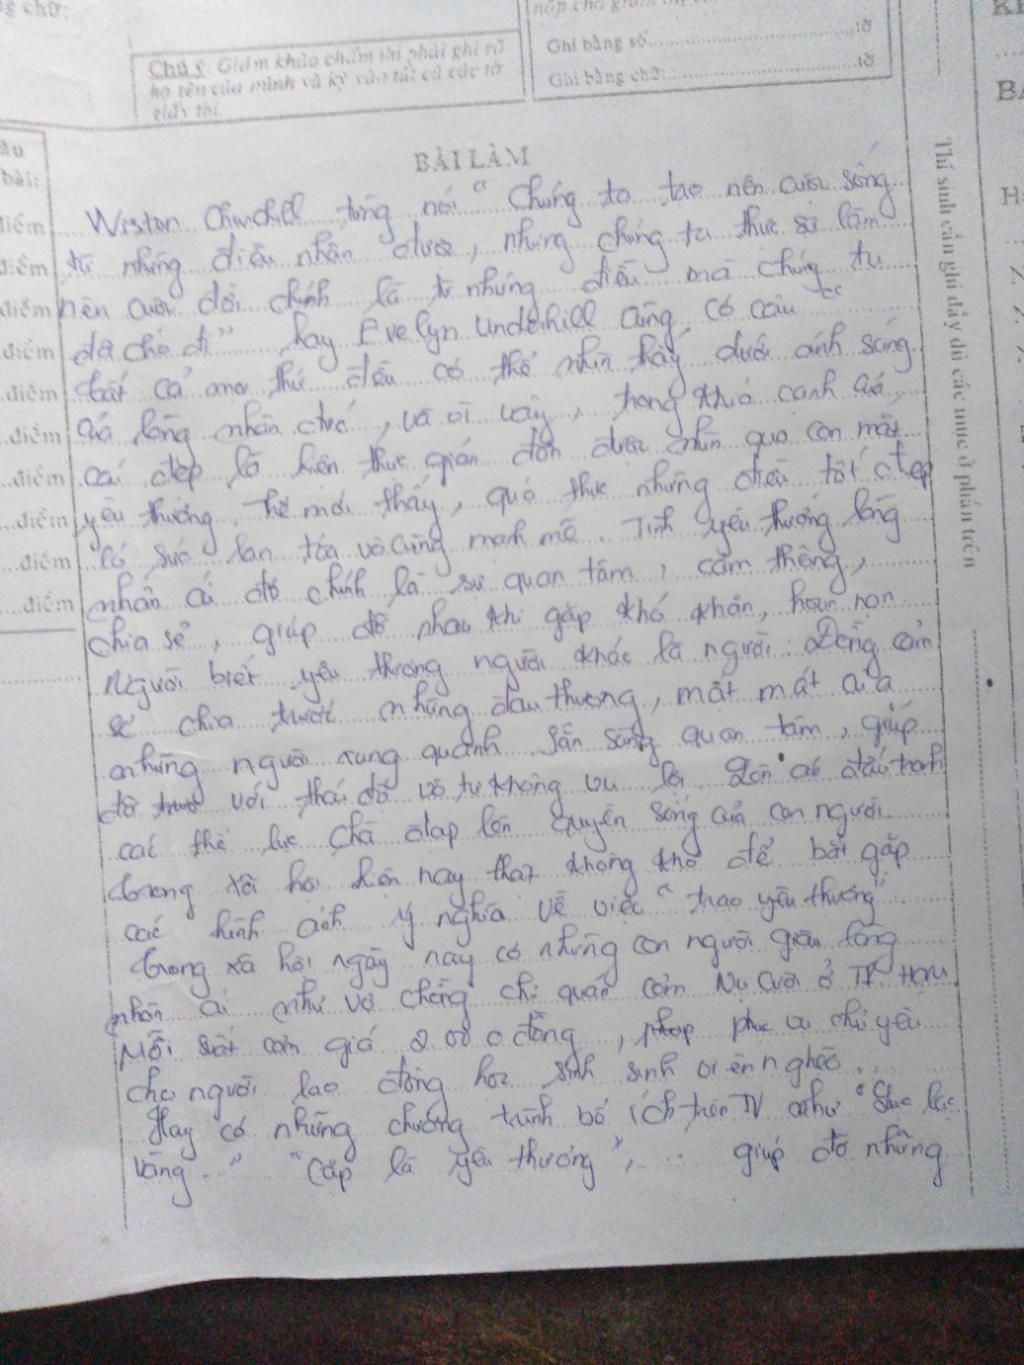 g chữ:
Chú ý: Giám khảo chấm thi phải ghi rõ
họ tên của mình và ký vào tất cả các tờ
giấy thi.
Ghi bằng số........................tờ
Ghi bằng chữ:......................tờ
BÀI LÀM
Wiston Churchill từng nói " Chúng ta tạo nên cuộc sống
từ những điều nhận được, nhưng chúng ta thực sự làm
nên cuộc đời chính là từ những điều mà chúng ta
đã cho đi" hay Evelyn Underhill cũng có câu "
bất cả mọi thứ đều có thể nhìn thấy dưới ánh sáng
của lòng nhân đức, và vì vậy, trong khía cạnh của
cái đẹp là hiện thực giản đơn được nhìn qua con mắt
yêu thương. Thế mới thấy, quả thực những điều tốt đẹp
có sức lan tỏa vô cùng mạnh mẽ. Tình yêu thương lòng
nhân ái đó chính là sự quan tâm, cảm thông,
chia sẻ, giúp đỡ nhau khi gặp khó khăn, hoạn nạn
Người biết yêu thương người khác là người: Đồng cảm
sẻ chia trước những đau thương, mất mát của
những người xung quanh. Sẵn sàng quan tâm, giúp
đỡ với thái độ vô tư không vụ lợi. đấu tranh
các thế lực chà đạp lên quyền sống của con người
trong xã hội hiện nay thật không khó để bắt gặp
các hình ảnh ý nghĩa về việc "trao yêu thương"
trong xã hội ngày nay có những con người giàu lòng
nhân ái như vợ chồng chị quán cơm Nụ Cười ở TP. HCM
Mỗi suất cơm giá 2.000 đồng, phục vụ chủ yếu
cho người lao động học sinh sinh viên nghèo.
Hay có những chương trình bổ ích trên TV như "Lục lạc
vàng." "Cặp lá yêu thương",... giúp đỡ những
âu
bài:
điểm
điểm
điểm
điểm
điểm
điểm
điểm
điểm
điểm
điểm
Thí sinh cần ghi đầy đủ các mục ở phần trên